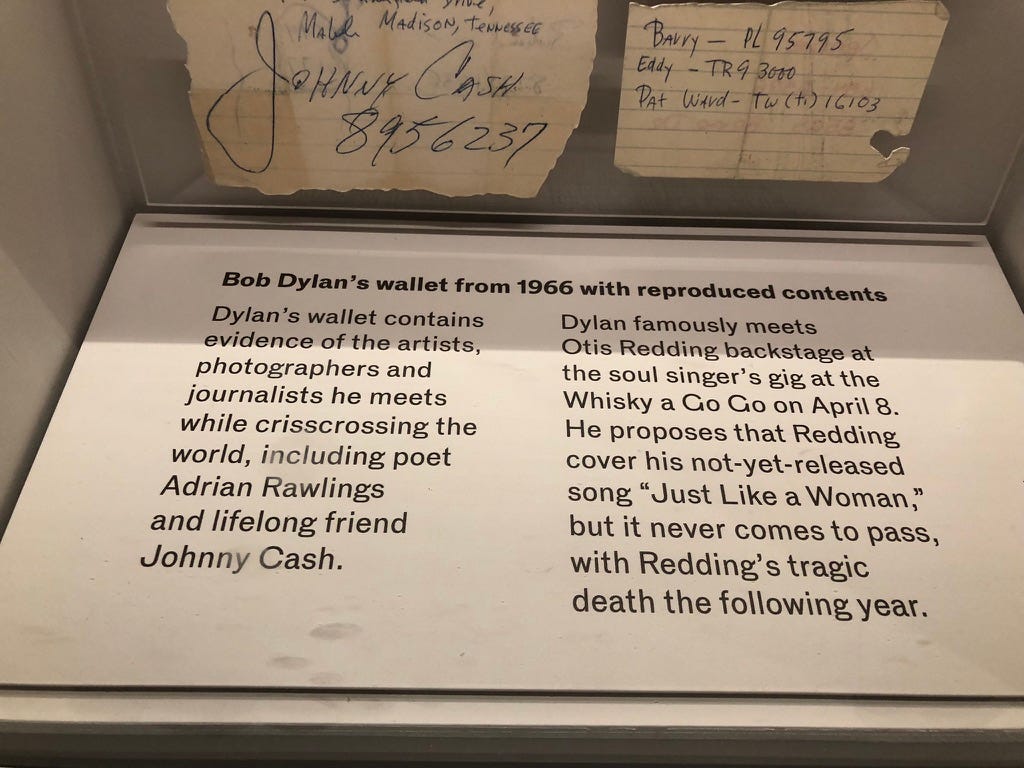 Drive,
Madison, Tennessee
Johnny Cash
8956237
Barry - PL 95795
Eddy - TR9 3000
Pat Ward - TW(ti) 16103
Bob Dylan's wallet from 1966 with reproduced contents
Dylan's wallet contains
evidence of the artists,
photographers and
journalists he meets
while crisscrossing the
world, including poet
Adrian Rawlings
and lifelong friend
Johnny Cash.
Dylan famously meets
Otis Redding backstage at
the soul singer's gig at the
Whisky a Go Go on April 8.
He proposes that Redding
cover his not-yet-released
song “Just Like a Woman,”
but it never comes to pass,
with Redding's tragic
death the following year.